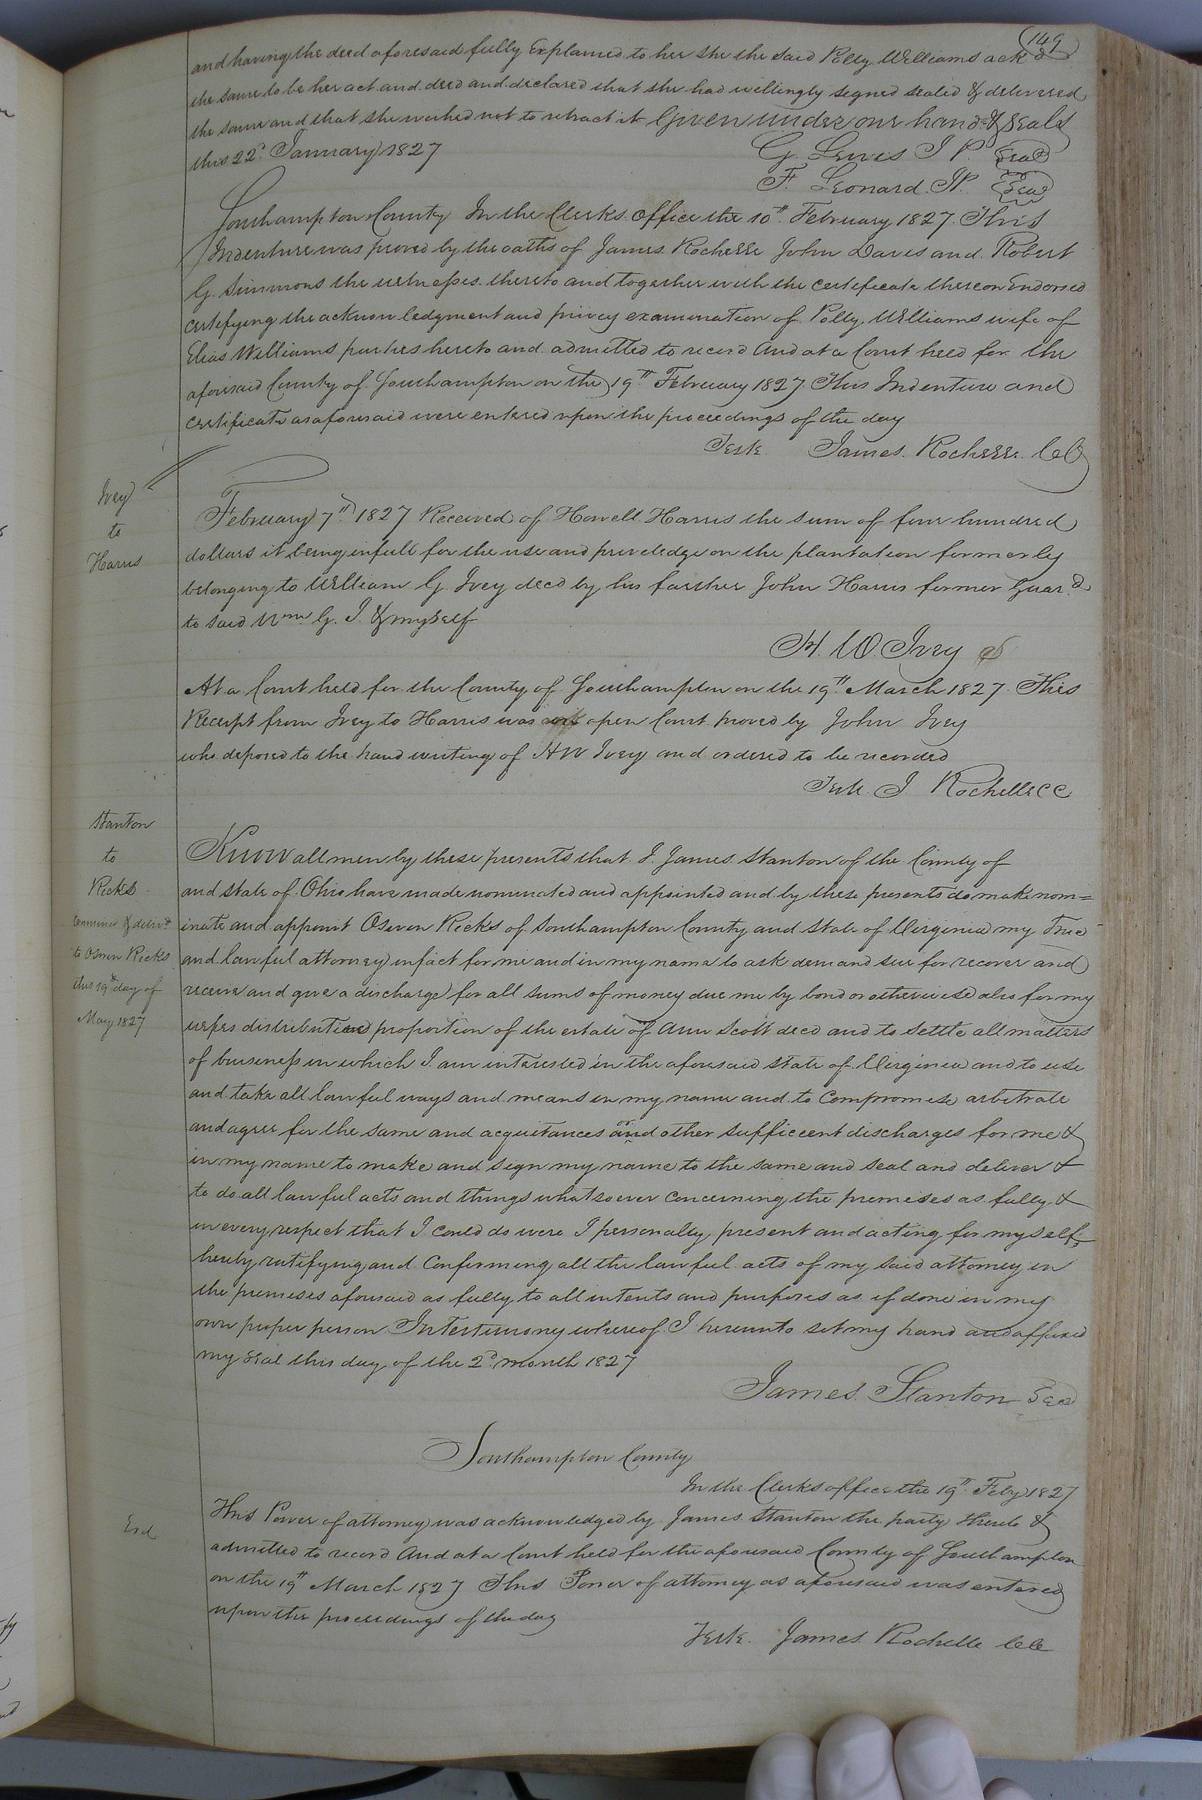 149
and having the deed aforesaid fully Explained to her she the said Polly Williams ackd
the same to be her act and deed and declared that she had willingly signed sealed & delivered
the same and that she wished not to retract it Given under our hands & seals
this 22d January 1827
G. Lewis J P. Seal
F. Leonard JP. Seal
Southampton County In the Clerks office the 10th February 1827. This
Indenture was proved by the oaths of James Rochelle John Davis and Robert
G. Simmons the witnesses thereto and together with the certificate thereon Endorsed
certifying the acknowledgment and privey examination of Polly Williams wife of
Elias Williams parties hereto and admitted to record And at a Court heed for the
aforesaid County of Southampton on the 19th February 1827. This Indenture and
certificate as aforesaid were entered upon the proceedings of the day
Teste James Rochelle CC
Ivey
to
Harris
February 7th 1827 Received of Howell Harris the sum of four hundred
dollars it being in full for the use and priveledge on the plantation formerly
belonging to William G Ivey decd by his farther John Harris former Guard
to said Wm G. I. & myself
H. W. Ivey
At a Court held for the County of Southampton on the 19th March 1827. This
Receipt from Ivey to Harris was open Court proved by John Ivey
who deposed to the hand writing of H W Ivey and ordered to be recorded
Teste J Rochelle CC
Stanton
to
Ricks
examined & delivd
to Oswin Ricks
this 19th day of
May 1827
Know all men by these presents that I James Stanton of the County of
and state of Ohio have made nominated and appointed and by these presents do make nom=
inate and appoint Oswin Ricks of Southampton County and State of Virginia my True
and lawful attorney in fact for me and in my name to ask demand sue for recover and
receive and give a discharge for all sums of money due me by bond or otherwise also for my
wifes distributive proportion of the estate of Ann Scott decd and to settle all matters
of business in which I am interested in the aforesaid state of Virginia and to use
and take all lawful ways and means in my name and to Compromise arbitrate
and agree for the same and acquitances and other sufficient discharges for me &
in my name to make and sign my name to the same and seal and deliver &
to do all lawful acts and things whatsoever concerning the premises as fully &
in every respect that I could do were I personally present and acting for myself
hereby ratifying and Confirming all the lawful acts of my said attorney in
the premises aforesaid as fully to all intents and purposes as if done in my
own proper person In testimony whereof I hereunto set my hand and affixed
my seal this day of the 2d month 1827
James Stanton Seal
Southampton County
In the Clerks office the 19th Feby 1827
Exd
This Power of attorney was acknowledged by James Stanton the party thereto &
admitted to record And at a Court held for the aforesaid County of Southampton
on the 19th March 1827 This Power of attorney as aforesaid was entered
upon the proceedings of the day
Teste. James Rochelle CC